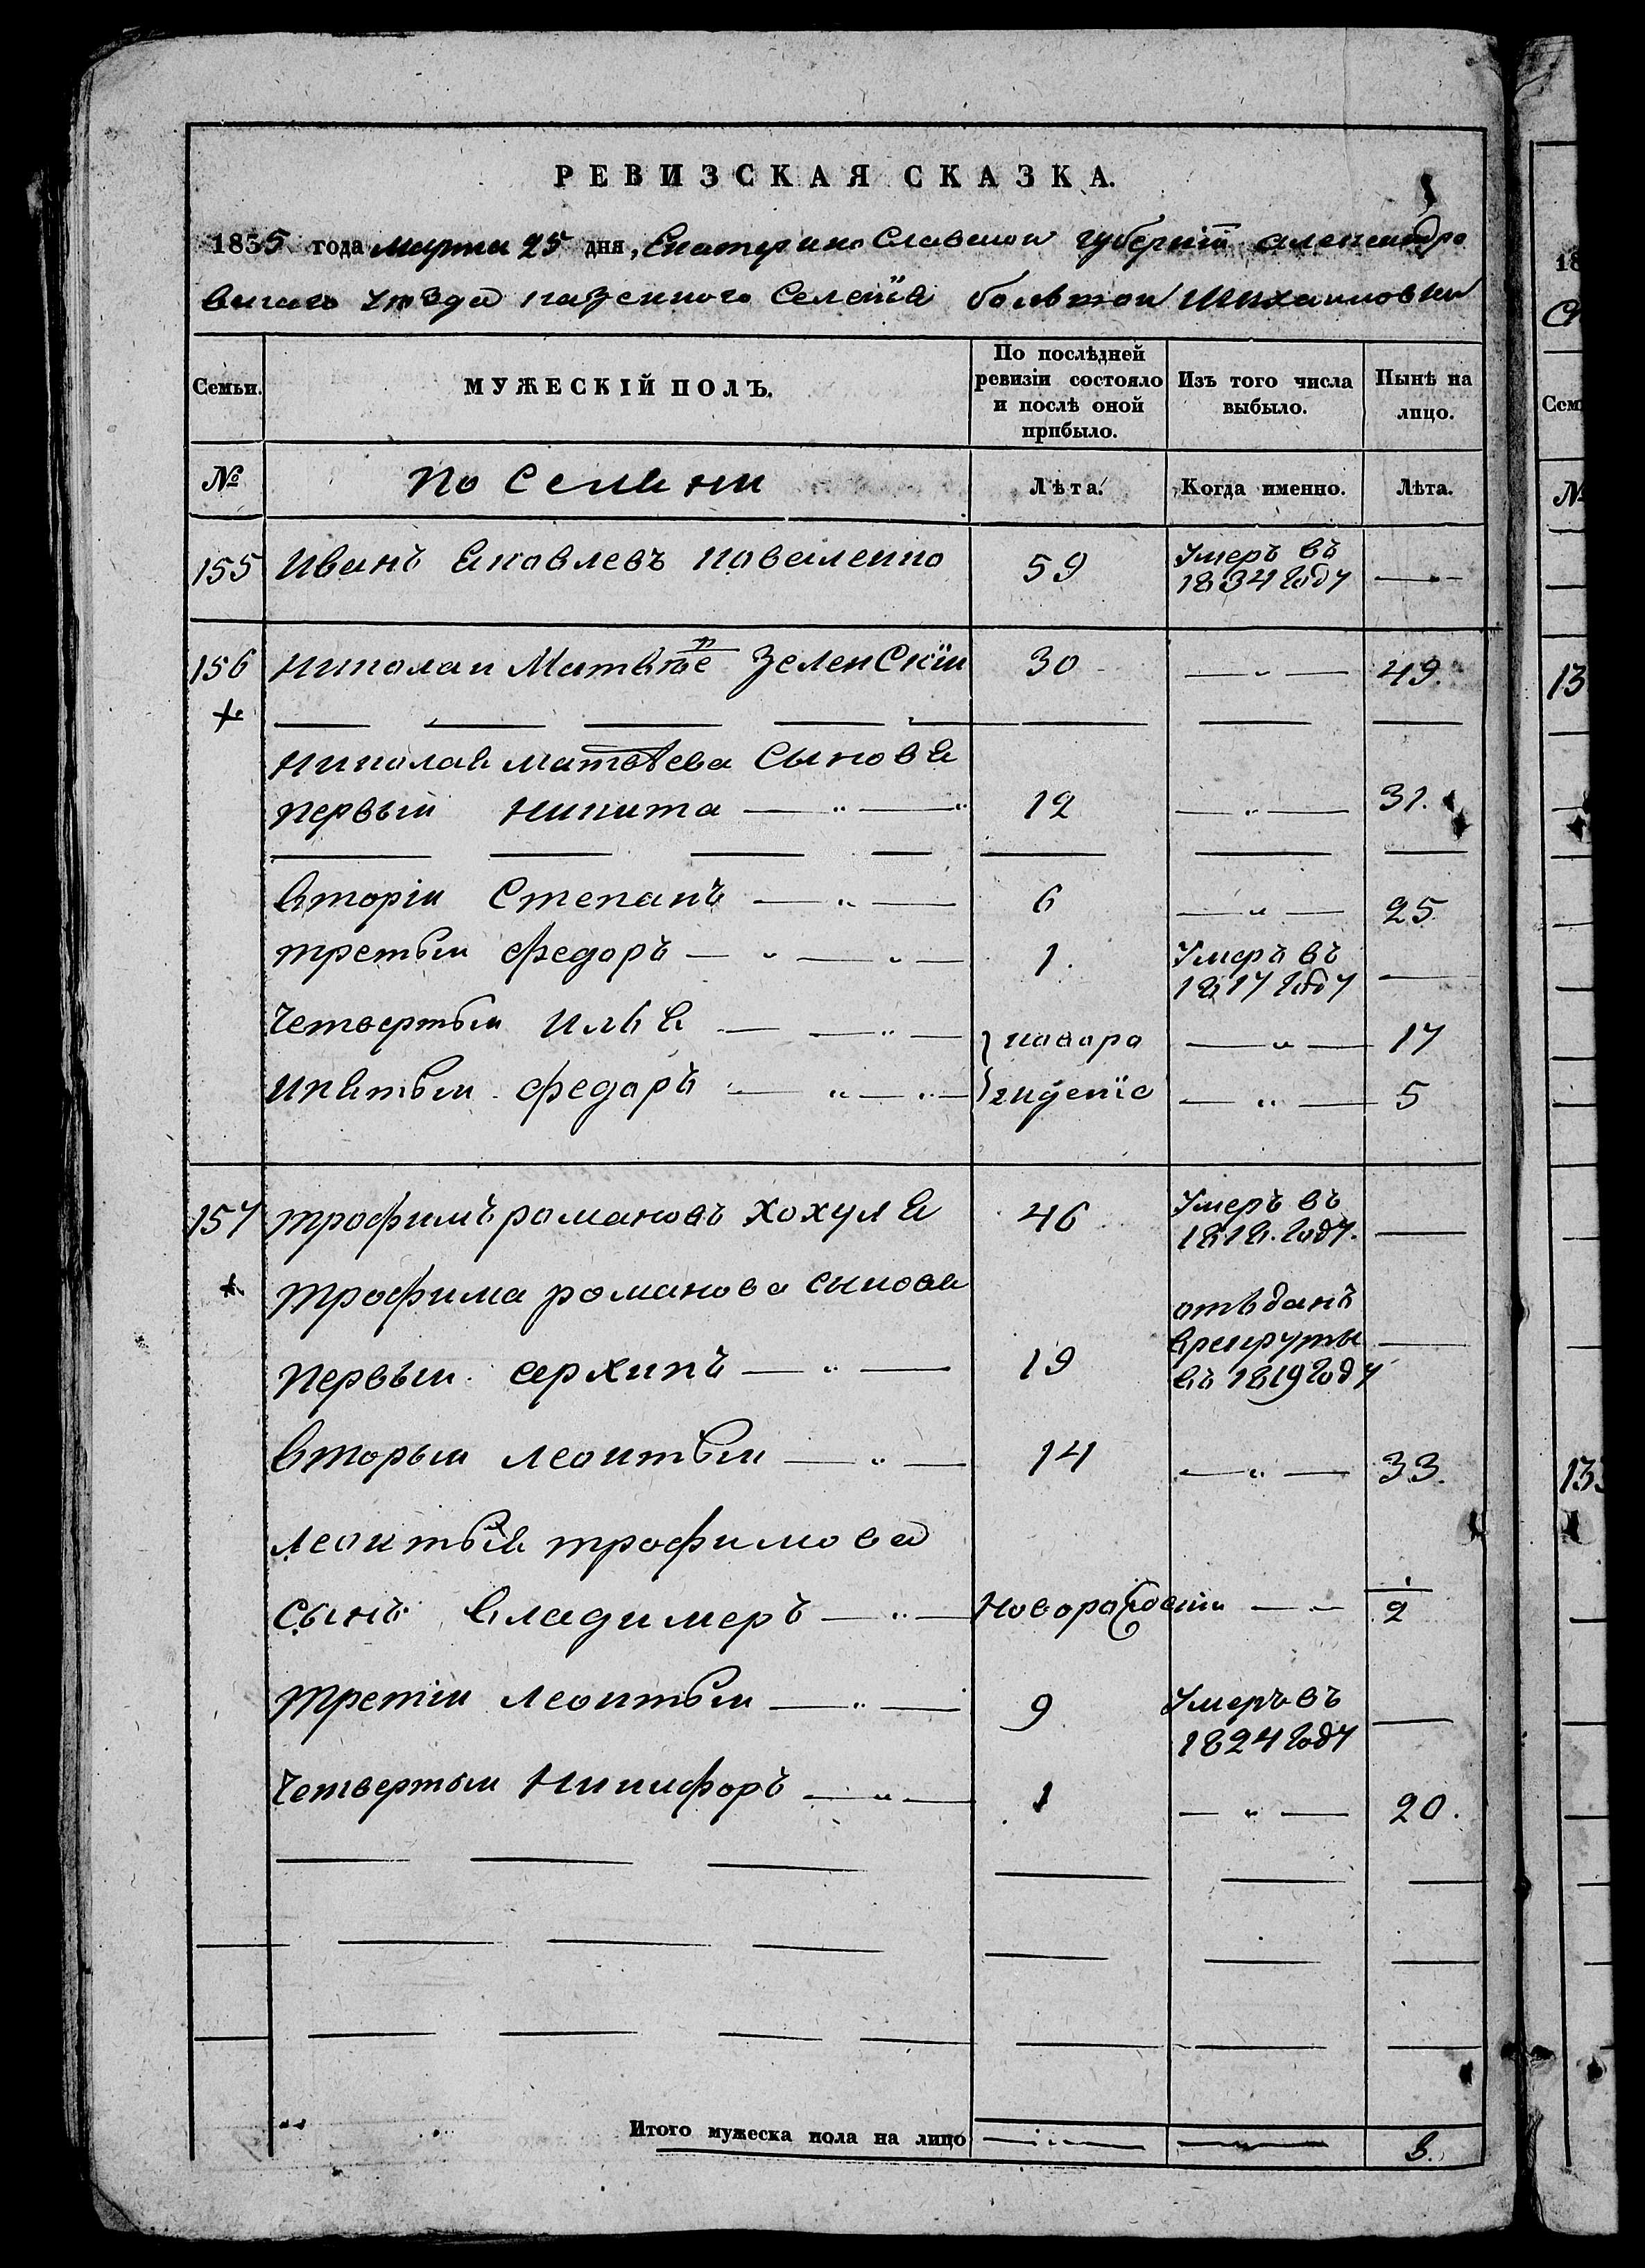 РЕВИЗСКАЯ СКАЗКА.
1835 года марта 25 дня, Екатерино Славской губерніи александро
вскаго уезда казенного Селенія большой Михаиловки
Семьи. МУЖЕСКІЙ ПОЛЪ. По послѣдней ревизіи состояло и послѣ оной прибыло. Изъ того числа выбыло. Нынѣ на лицо.
№ Лѣта. Когда именно. Лѣта.
155 Иванъ Яковлевъ коваленко 59 Умеръ въ 1834 году
156 николаи Матвѣе зеленскіи 30 49.
николая матвѣева Сыновя
первыи никита 12 31.
вторіи Степанъ 6 25
третьи федоръ 1. Умеръ въ 1817 году
Четвертыи илья новоро 17
ипятыи федоръ ждение 5
157 трофимъ романовъ хохуля 46 Умеръ въ 1818. году.
трофима романова сыновя
первыи архипъ 19 отъданъ врекруты въ 1819 году
вторыи леонтьи 14 33.
леонтья трофимова
сынъ владимеръ 2
третіи леонтьи 9 Умеръ въ 1824 году
Четвертыи никифоръ 1 20.
Итого мужеска пола на лицо 8.